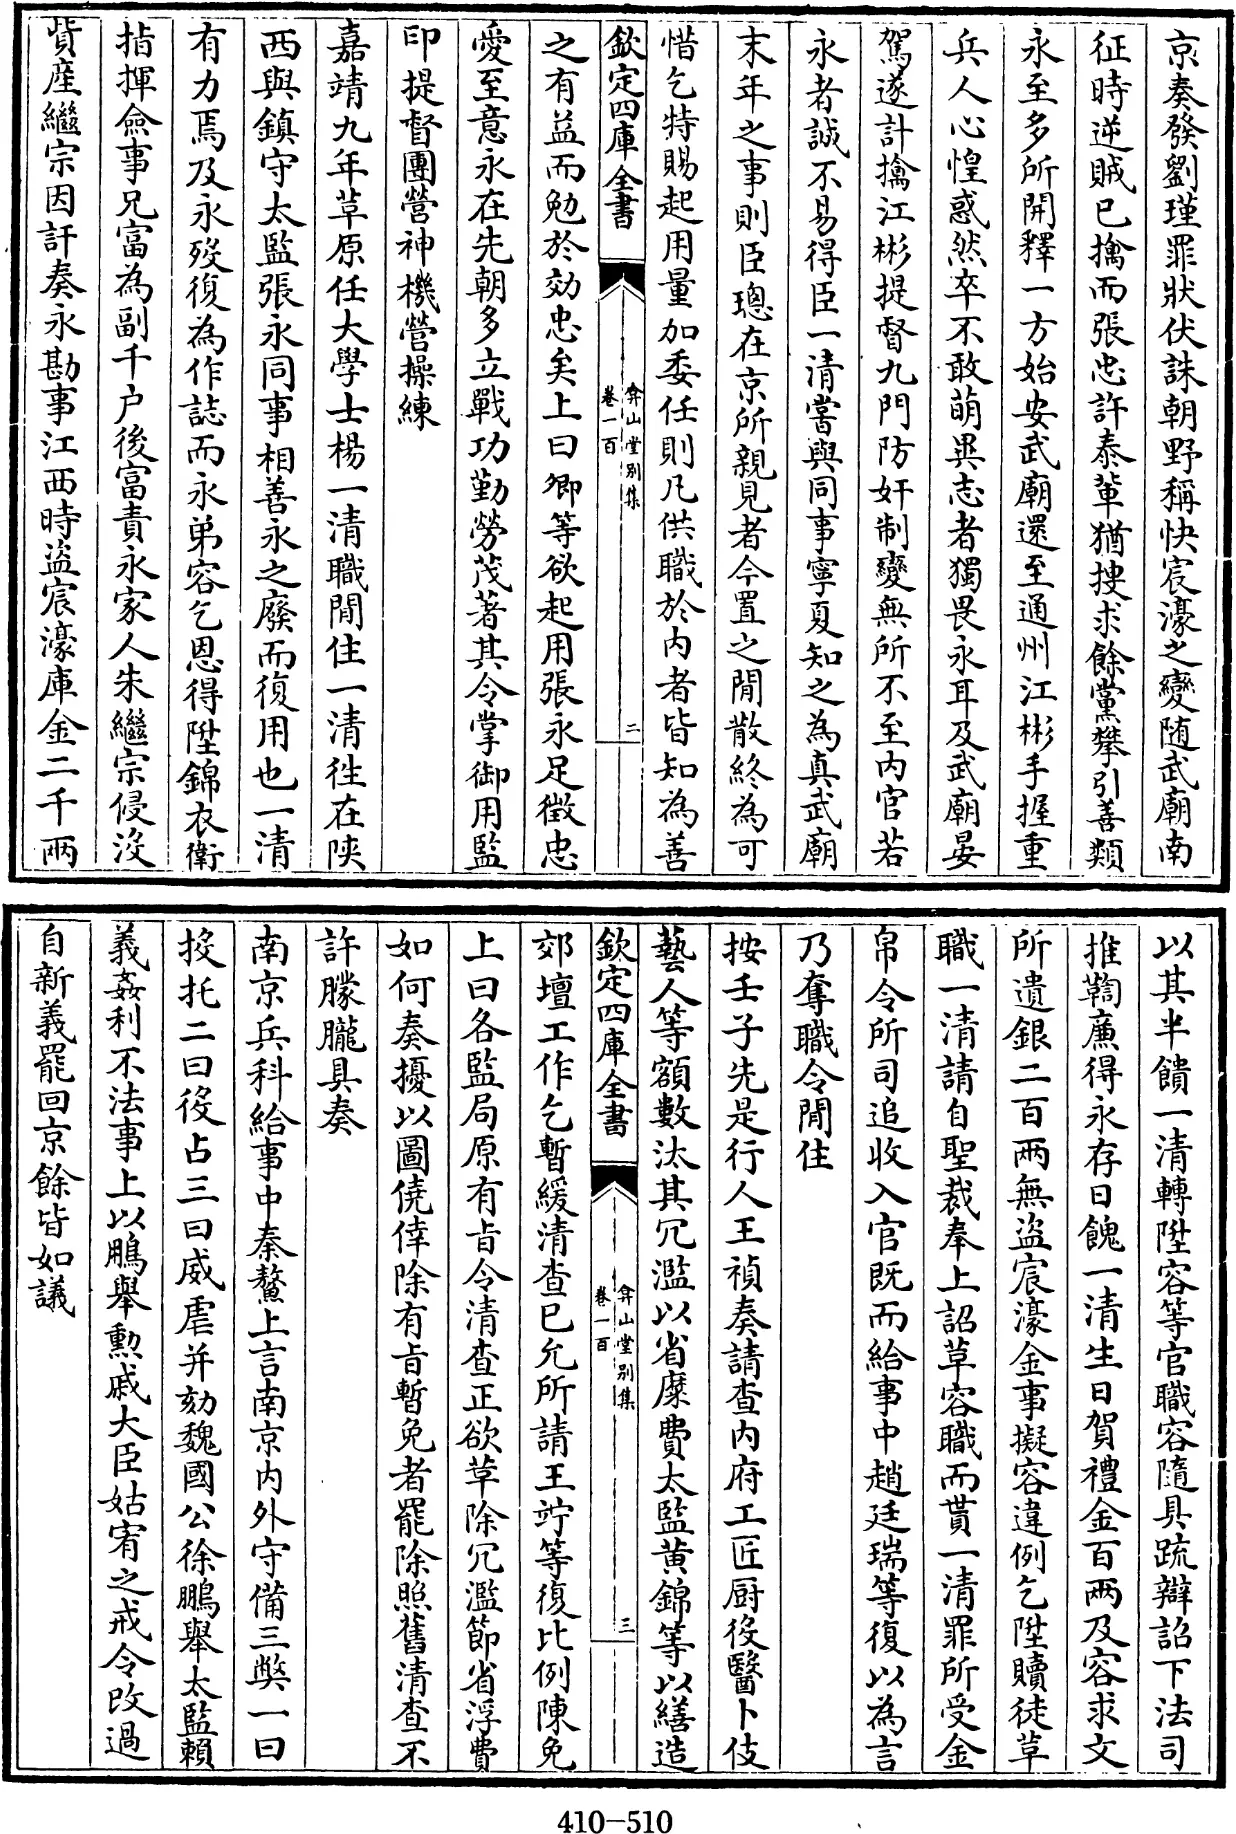 京奏發劉瑾罪狀伏誅朝野稱快宸濠之變随武廟南
征時逆賊已擒而張忠許泰軰猶捜求餘黨攀引善類
永至多所開釋一方始安武廟還至通州江彬手握重
兵人心惶惑然卒不敢萌異志者獨畏永耳及武廟晏
駕遂計擒江彬提督九門防奸制變無所不至内官若
永者誠不易得臣一清嘗與同事寧夏知之為真武廟
末年之事則臣璁在京所親見者今置之閒散終為可
惜乞特賜起用量加委任則凡供職於内者皆知為善
欽定四庫全書
弇山堂别集
卷一百
二
之有益而勉於効忠矣上曰卿等欲起用張永足徴忠
愛至意永在先朝多立戰功勤勞茂著其令掌御用監
印提督團營神機營操練
嘉靖九年草原任大學士楊一清職閒住一清徃在陜
西與鎮守太監張永同事相善永之廢而復用也一清
有力焉及永殁復為作誌而永弟容乞恩得陞錦衣衛
指揮僉事兄富為副千户後富責永家人朱繼宗侵沒
貲産繼宗因訐奏永勘事江西時盗宸濠庫金二千兩
以其半饋一清轉陞容等官職容隨具疏辯詔下法司
推鞫廉得永存日餽一清生日賀禮金百兩及容求文
所遺銀二百兩無盗宸濠金事擬容違例乞陞贖徒草
職一清請自聖裁奉上詔草容職而貰一清罪所受金
帛令所司追收入官既而給事中趙廷瑞等復以為言
乃奪職令閒住
按壬子先是行人王禎奏請查内府工匠厨役醫卜伎
藝人等額數汰其冗濫以省糜費太監黄錦等以繕造
欽定四庫全書
弇山堂别集
卷一百
三
郊壇工作乞暫緩清查已允所請王竚等復比例陳免
上曰各監局原有㫖令清查正欲草除冗濫節省浮費
如何奏擾以圖僥倖除有㫖暫免者罷除照舊清查不
許朦朧具奏
南京兵科給事中秦鰲上言南京内外守備三獘一曰
投托二曰役占三曰威虐并劾魏國公徐鵬舉太監賴
義姦利不法事上以鵬舉勲戚大臣姑宥之戒令改過
自新義罷回京餘皆如議
410-510